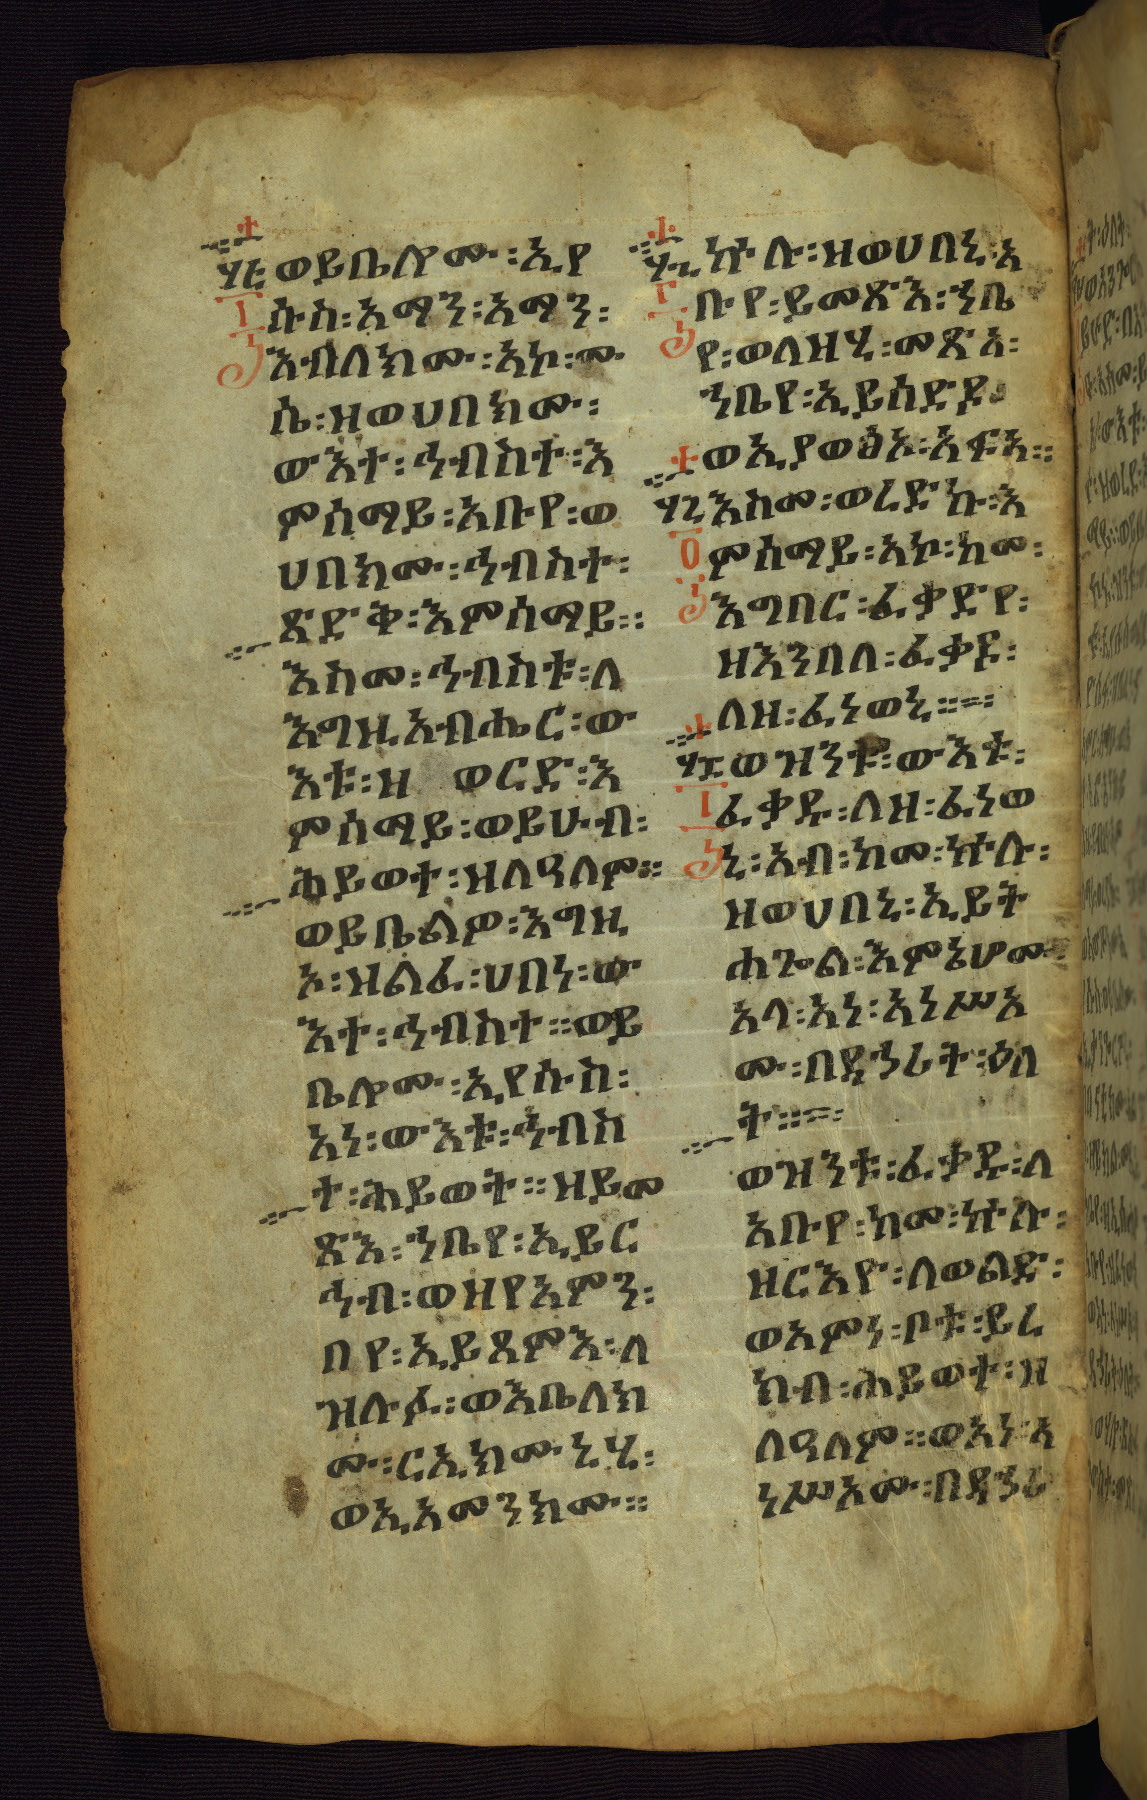 ወይቤሎሙ፡ኢየ
ሱስ፡አማን፡አማን፡
እብለክሙ፡አኮ፡ሙ
ሴ፡ዘወሀበክሙ፡
ውእተ፡ኅብስተ፡እ
ምሰማይ፡አቡየ፡ወ
ሀበክሙ፡ኅብስተ፡
ጽድቅ፡እምሰማይ።
እስመ፡ኅብስቱ፡ለ
እግዚአብሔር፡ው
እቱ፡ዘ ወርደ፡እ
ምሰማይ፡ወይሁብ፡
ሕይወተ፡ዘለዓለም።
ወይቤልዎ፡እግዚ
ኦ፡ዝልፈ፡ሀበነ፡ው
እተ፡ኅብስተ።ወይ
ቤሎሙ፡ኢየሱስ፡
አነ፡ውእቱ፡ኅብስ
ተ፡ሕይወት።ዘይመ
ጽእ፡ኀቤየ፡ኢይር
ኅብ፡ወዘየአምን፡
በየ፡ኢይጸምእ፡ለ
ዝሉፉ፡ወእቤለክ
ሙ፡ርኢክሙኒሂ፡
ወኢአመንክሙ።
ኵሉ፡ዘወሀበኒ፡አ
ቡየ፡ይመጽእ፡ኀቤ
የ፡ወለዘሂ፡መጽአ፡
ኀቤየ፡ኢይሰድዶ
ወኢያወፅኦ፡አፍአ።
እስመ፡ወረድኩ፡እ
ምሰማይ፡አኮ፡ከመ፡
እግበር፡ፈቃድየ፡
ዘእንበለ፡ፈቃዱ፡
ለዘ፡ፈነወኒ።
ወዝንቱ፡ውእቱ፡
ፈቃዱ፡ለዘ፡ፈነወ
ኒ፡አብ፡ከመ፡ኵሉ፡
ዘወሀበኒ፡ኢይት
ሐጐል፡እምኔሆሙ
አላ፡አነ፡አነሥአ
ሙ፡በደኃሪት፡ዕለ
ት።
ወዝንቱ፡ፈቃዱ፡ለ
አቡየ፡ከመ፡ኵሉ፡
ዘርእዮ፡ለወልድ፡
ወአምነ፡ቦቱ፡ይረ
ክብ፡ሕይወተ፡ዘ
ለዓለም።ወአነ፡አ
ነሥአሙ፡በደኃሪ